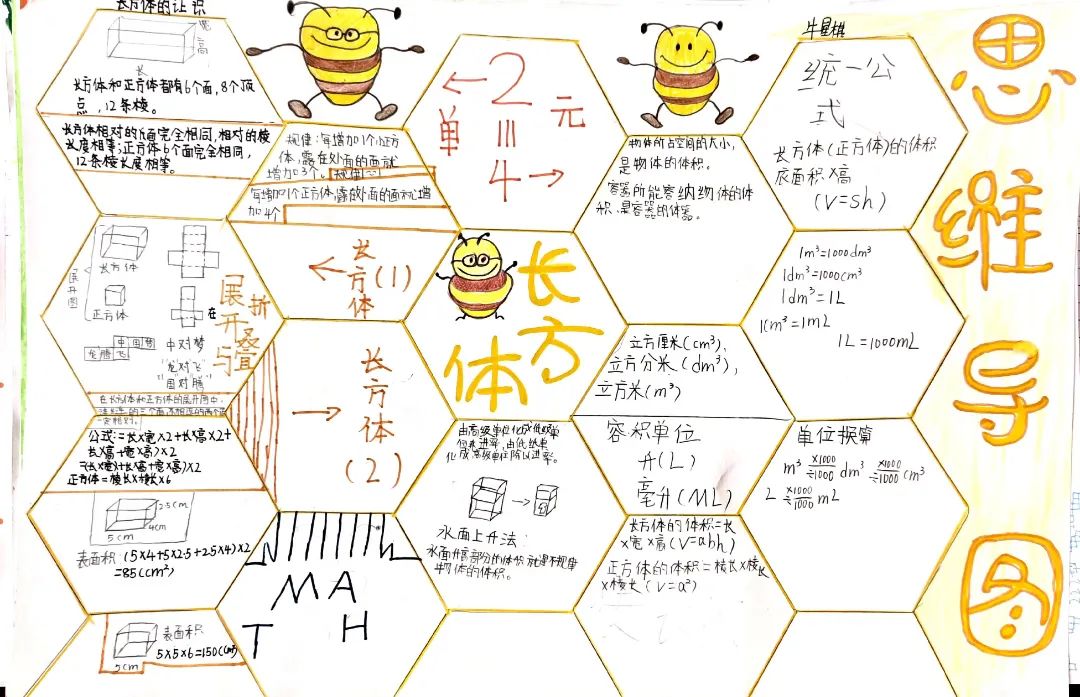 长方体的认识
宽
高
长
长方体和正方体都有6个面,8个顶
点,12条棱。
长方体相对的面完全相同,相对的棱
长度相等;正方体6个面完全相同,
12条棱长度相等。
规律:每增加1个小正方
体,露在外面的面就
增加3个。规律(二)
每增加1个正方体,露在外面的面就增
加4个
展开图
长方体
正方体
中国梦
龙腾飞
中对梦
"龙对飞"
"国对腾"
展开与折叠
在
在长方体和正方体的展开图中,
一定相对。
公式:=长×宽×2+长×高×2+
长×高+宽×高)×2
=(长×宽)+长×高+宽×高)×2
正方体=棱长×棱长×6
2.5cm
4cm
5cm
表面积:(5×4+5×2.5+2.5×4)×2
=85(cm²)
表面积
5×5×6=150(cm²)
5cm
MATH
←2单元4→
长方体(1)
长方体(2)
长方体
由高级单位化成低级单
位乘进率,由低级单
化成高级单位除以进率。
水面上升法:
水面升高部分的体积就是不规律
物体的体积。
物体所占空间的大小,
是物体的体积。
容器所能容纳物体的体
积,是容器的体器。
立方厘米(cm³)、
立方分米(dm³),
立方米(m³)
容积单位
升(L)
毫升(ML)
长方体的体积=长
×宽×高(V=abh)
正方体的体积=棱长×棱长
×棱长(V=a²)
牛星棋
统一公
式
长方体(正方体)的体积
底面积×高
(V=Sh)
1m³=1000dm³
1dm³=1000cm³
1dm³=1L
1cm³=1mL
1L=1000mL
单位换算
m³ ×1000 ÷1000 dm³ ×1000 ÷1000 cm³
L ×1000 ÷1000 mL
思维导图